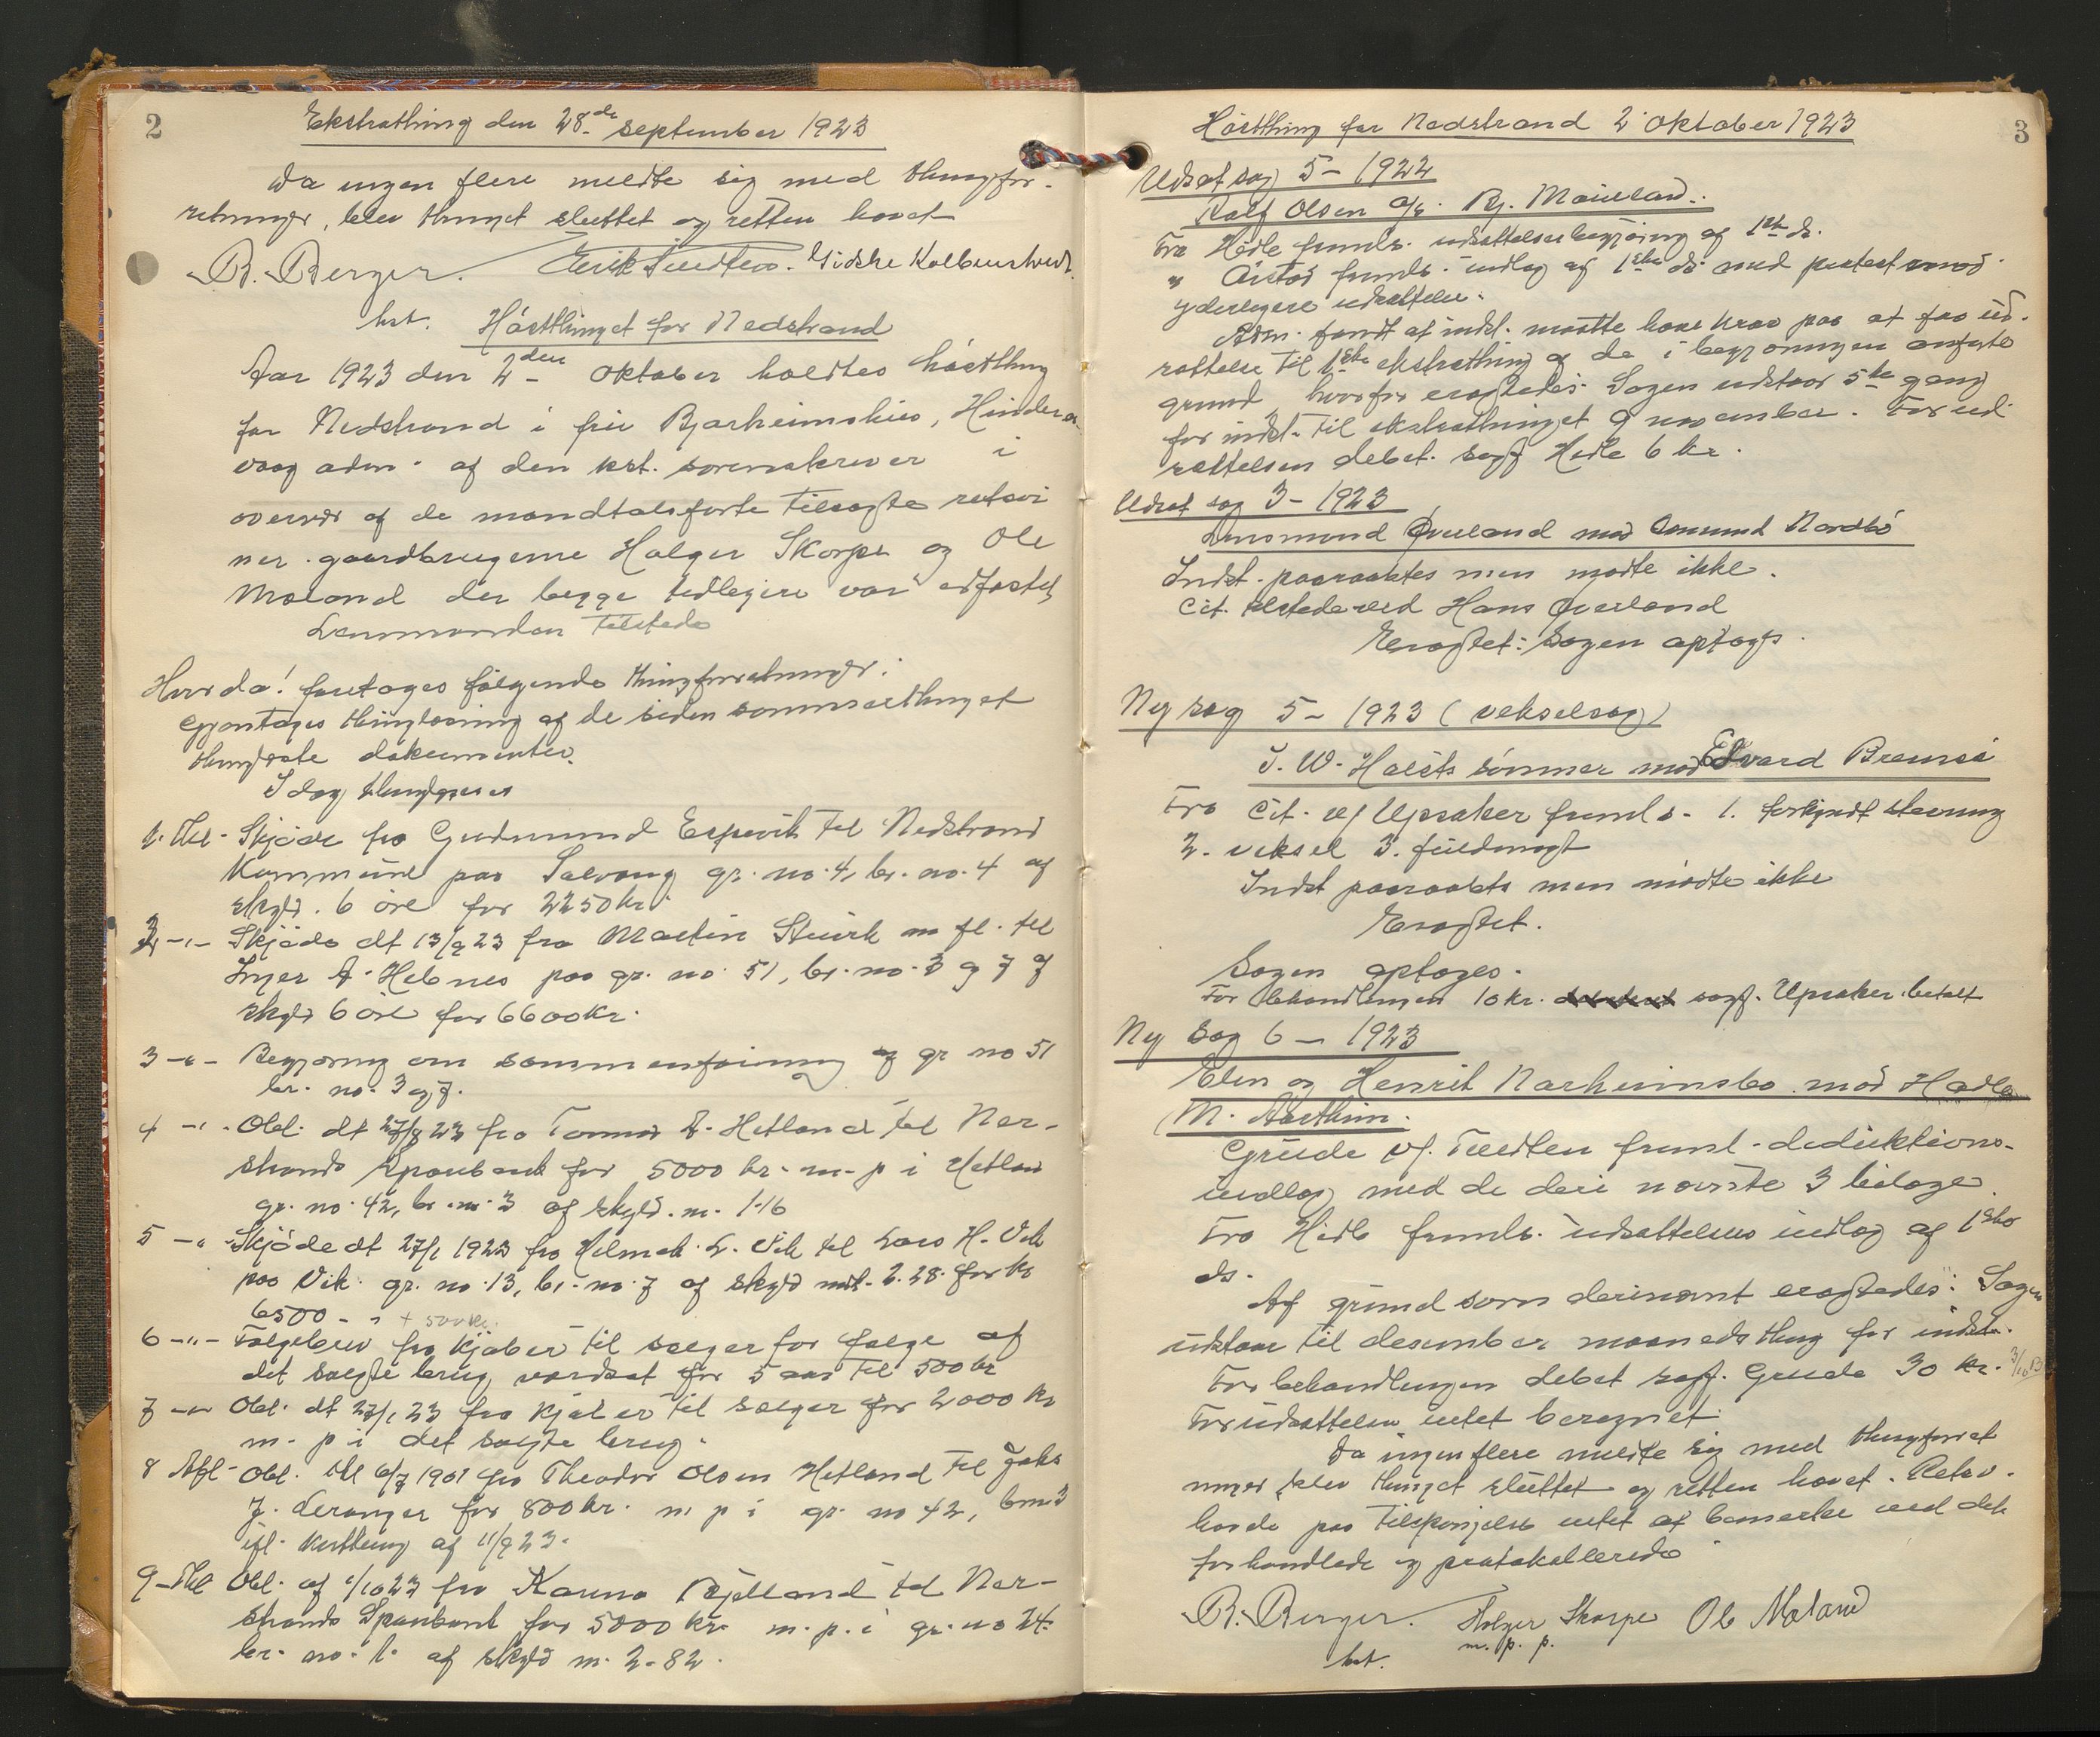 2
Ekstrathing den 28de september 1923
Da ingen flere meldte sig med thingfor-
retninger, blev thinget sluttet og retten hævet
B. Berger. Erik Tuedten. Gidske Kolbeinstvedt
kst.
Høstthinget for Nedstrand
Aar 1923 den 2den oktober holdtes høstthing
for Nedstrand i fru Bjarheims hus, Hindera-
vaag adm. af den kst. sorenskriver i
overvær af de mandtalsførte tilsagte retsvi
ner gaardbrugerne Holger Skorpe og Ole
Møland der begge tidligere var edfæstet
Lensmanden tilstede
Hvorda! foretages følgende thingforretninger:
Gjentages thinglæsning af de siden sommerthinget
thinglæste dokumenter.
Idag thinglæses
1. Thl - Skjøde fra Gudmund Espevik til Nedstrand
Kommune paa Solvang gr. no. 4, br. no. 4 af
skyld. 6 øre for 2250 kr.
2 -"- Skjøde dt 13/9 23 fra Martin Stuvik m fl. til
Inger A. Hebnes paa gr. no. 51, br. no. 3 og 7 af
skyld 6 øre for 6600 kr.
3 -"- Begjæring om sammenføining af gr no 51
br. no. 3 og 7.
4 -"- Obl. dt 27/8 23 fra Tormod A. Hetland til Ner-
strands Sparebank for 5000 kr. m. p i Hetland
gr. no. 42, br. no. 3 af skyld. m. 1.16
5 -"- Skjøde dt 27/1 1923 fra Helmik L. Vik til Lars H. Vik
paa Vik gr. no. 13, br. no. 7 af skyld mrk. 2.28 for kr
6500 - " + 500 kr.
6 -"- Følgebrev fra kjøber til sælger for følge af
det solgte brug værdsat for 5 aar til 500 kr
7 -"- Obl. dt 27/1 23 fra kjøber til sælger for 2000 kr
m. p i det solgte brug.
8 Afl - Obl. thl 6/7 1901 fra Theodor Olsen Hetland til Jaks
J. Leranger for 800 kr. m p i gr. no 42, br no 3
ifl. kvittering af 11/9 23.
9 - Thl Obl. af 1/10 23 fra Karina Bjelland til Ner-
strands Sparebank for 5000 kr. m. p. i gr. no 24
br. no. 1. af skyld m. 2.82.
3
Høstthing for Nedstrand 2 oktober 1923
Udsat sag 5 - 1922
Ralf Olsen c/a. Bj. Mæland.
Fra Hidle fremls. udsættelsesbegjæring af 1ste ds.
" Aistad fremls. indlæg af 1ste ds. med protest imod
yderligere udsættelse.
Adm. fandt at indst. maatte have krav paa at faa ud-
sættelse til 1ste ekstrathing af de i begjæringen anførte
grund, hvorfor eragtedes: Sagen udstaar 5te gang
for indst. til ekstrathinget 9 november. For ud-
sættelsen debet. sagf Hidle 6 kr.
Udsat sag 3 - 1923
Lensmand Qveland mod Amund Nordbø
Indst. paaraabtes men mødte ikke.
Cit. tilstede ved Hans Qverland
Eragtet: Sagen optages.
Ny sag 5 - 1923 (vekselsag)
J. W. Holsts sønner mod Edvard Bremsø
Fra Cit. v/ Upsaker fremls. 1. forkyndt stævning
2. veksel 3. fuldmagt
Indst paaraabtes men mødte ikke
Eragtet.
Sagen optages.
For behandlingen 10 kr. sagf. Upsaker betalt
Ny sag 6 - 1923
Elen og Henrik Narheimsbø mod Hadle
M. Aartheim.
Grude v/. Tuedten freml. deduktions-
indlæg med de deri nævnte 3 bilage.
Fra Hidle fremls. udsættelses indlæg af 1ste
ds.
Af grund som derinævnt eragtedes: Sagen
udstaar til desember maaneds thing for indst.
For behandlingen debet sagf. Grude 30 kr. 3/10 B
For udsættelsen intet beregnet
Da ingen flere meldte sig med thingforret
ninger blev thinget sluttet og retten hævet. Retsv.
havde paa tilspørgelse intet at bemerke ved det
forhandlede og protokollerede
B. Berger. Holger Skorpe Ole Møland
kst. m. p. p.